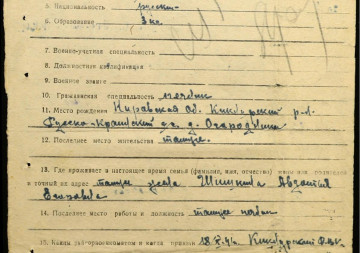 5. Национальность русский
6. Образование 3 кл.
7. Военно-учетная специальность
8. Должностная квалификация
9. Военное звание
10. Гражданская специальность
11. Место рождения Кировская об. Кикнурский р-н.
Русско-Краинский с/с. д. Огородники
12. Последнее место жительства там же.
13. Где проживает в настоящее время семья (фамилия, имя, отчество)
и точный их адрес там же жена Шишкина Авдотья
Егоровна
14. Последнее место работы и должность там же
15. Каким райгорвоенкоматом и когда призван 18.8.41г. Кикнурский РВК.